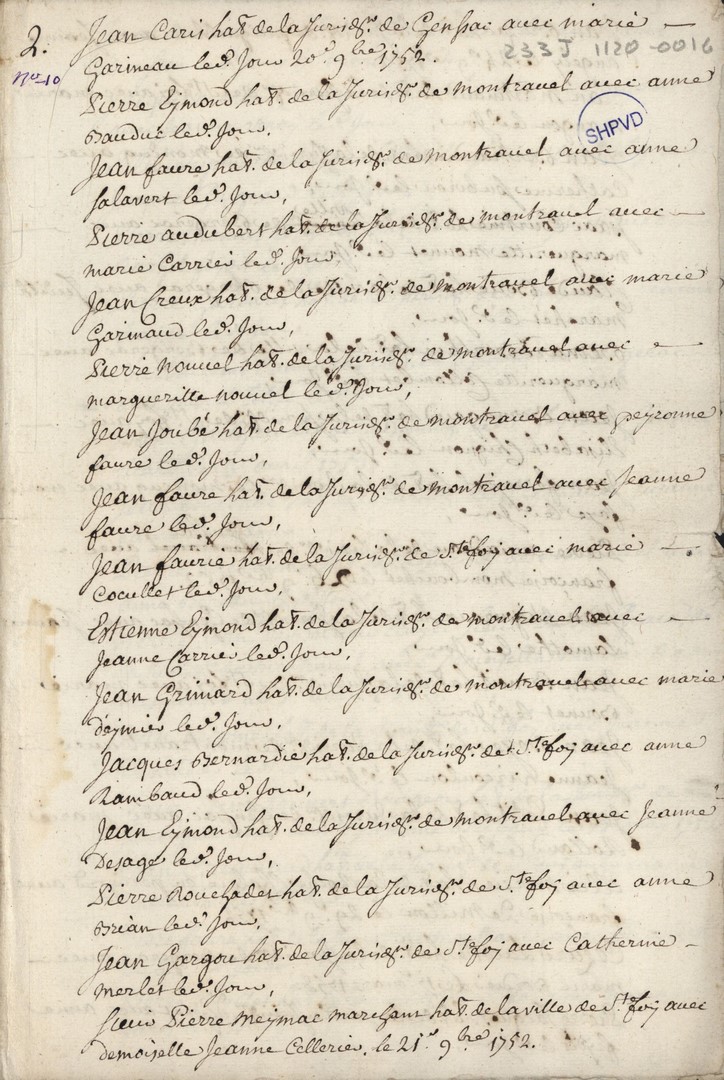 2.
N.º 10
233 J 1120-0016
SHPVD
Jean Caris hat. de la Jurisd.on de Genssac avec marie
Garineau led.t Jour 20e 9bre 1752.
Pierre Eymond hat. de la Jurisd.on de montravel avec anne
Bauduc led.t Jour,
Jean faure hat. de la Jurisd.on de montravel avec anne
salavert led.t Jour,
Pierre audubert hat. de la Jurisd.on de montravel avec
marie Carrier led.t Jour
Jean Creux hat. de la Jurisd.on de montravel avec marie
Garinaud led.t Jour,
Pierre nouvel hat. de la Jurisd.on de montravel avec
margueritte nouvel led.t Jour,
Jean Joubé hat. de la Jurisd.on de montravel avec peyronne
faure led.t Jour,
Jean faure hat. de la Jurisd.on de montravel avec Jeanne
faure led.t Jour,
Jean faurie hat. de la Jurisd.on de Ste foy avec marie
Cocullet led.t Jour,
Estienne Eymond hat. de la Jurisd.on de montravel avec
Jeanne Carrier led.t Jour,
Jean Grimard hat. de la Jurisd.on de montravel avec marie
deymier led.t Jour,
Jacques Bernardie hat. de la Jurisd.on de Ste foy avec anne
Rambaud led.t Jour,
Jean Eymond hat. de la Jurisd.on de montravel avec Jeanne
Desage led.t Jour,
Pierre Rouchades hat. de la Jurisd.on de Ste foy avec anne
Brian led.t Jour,
Jean Gargou hat. de la Jurisd.on de Ste foy avec Catherine
merlet led.t Jour,
sieur Pierre meymac marchant hat. de la ville de Ste foy avec
demoiselle Jeanne Cellerier, le 21e 9bre 1752.